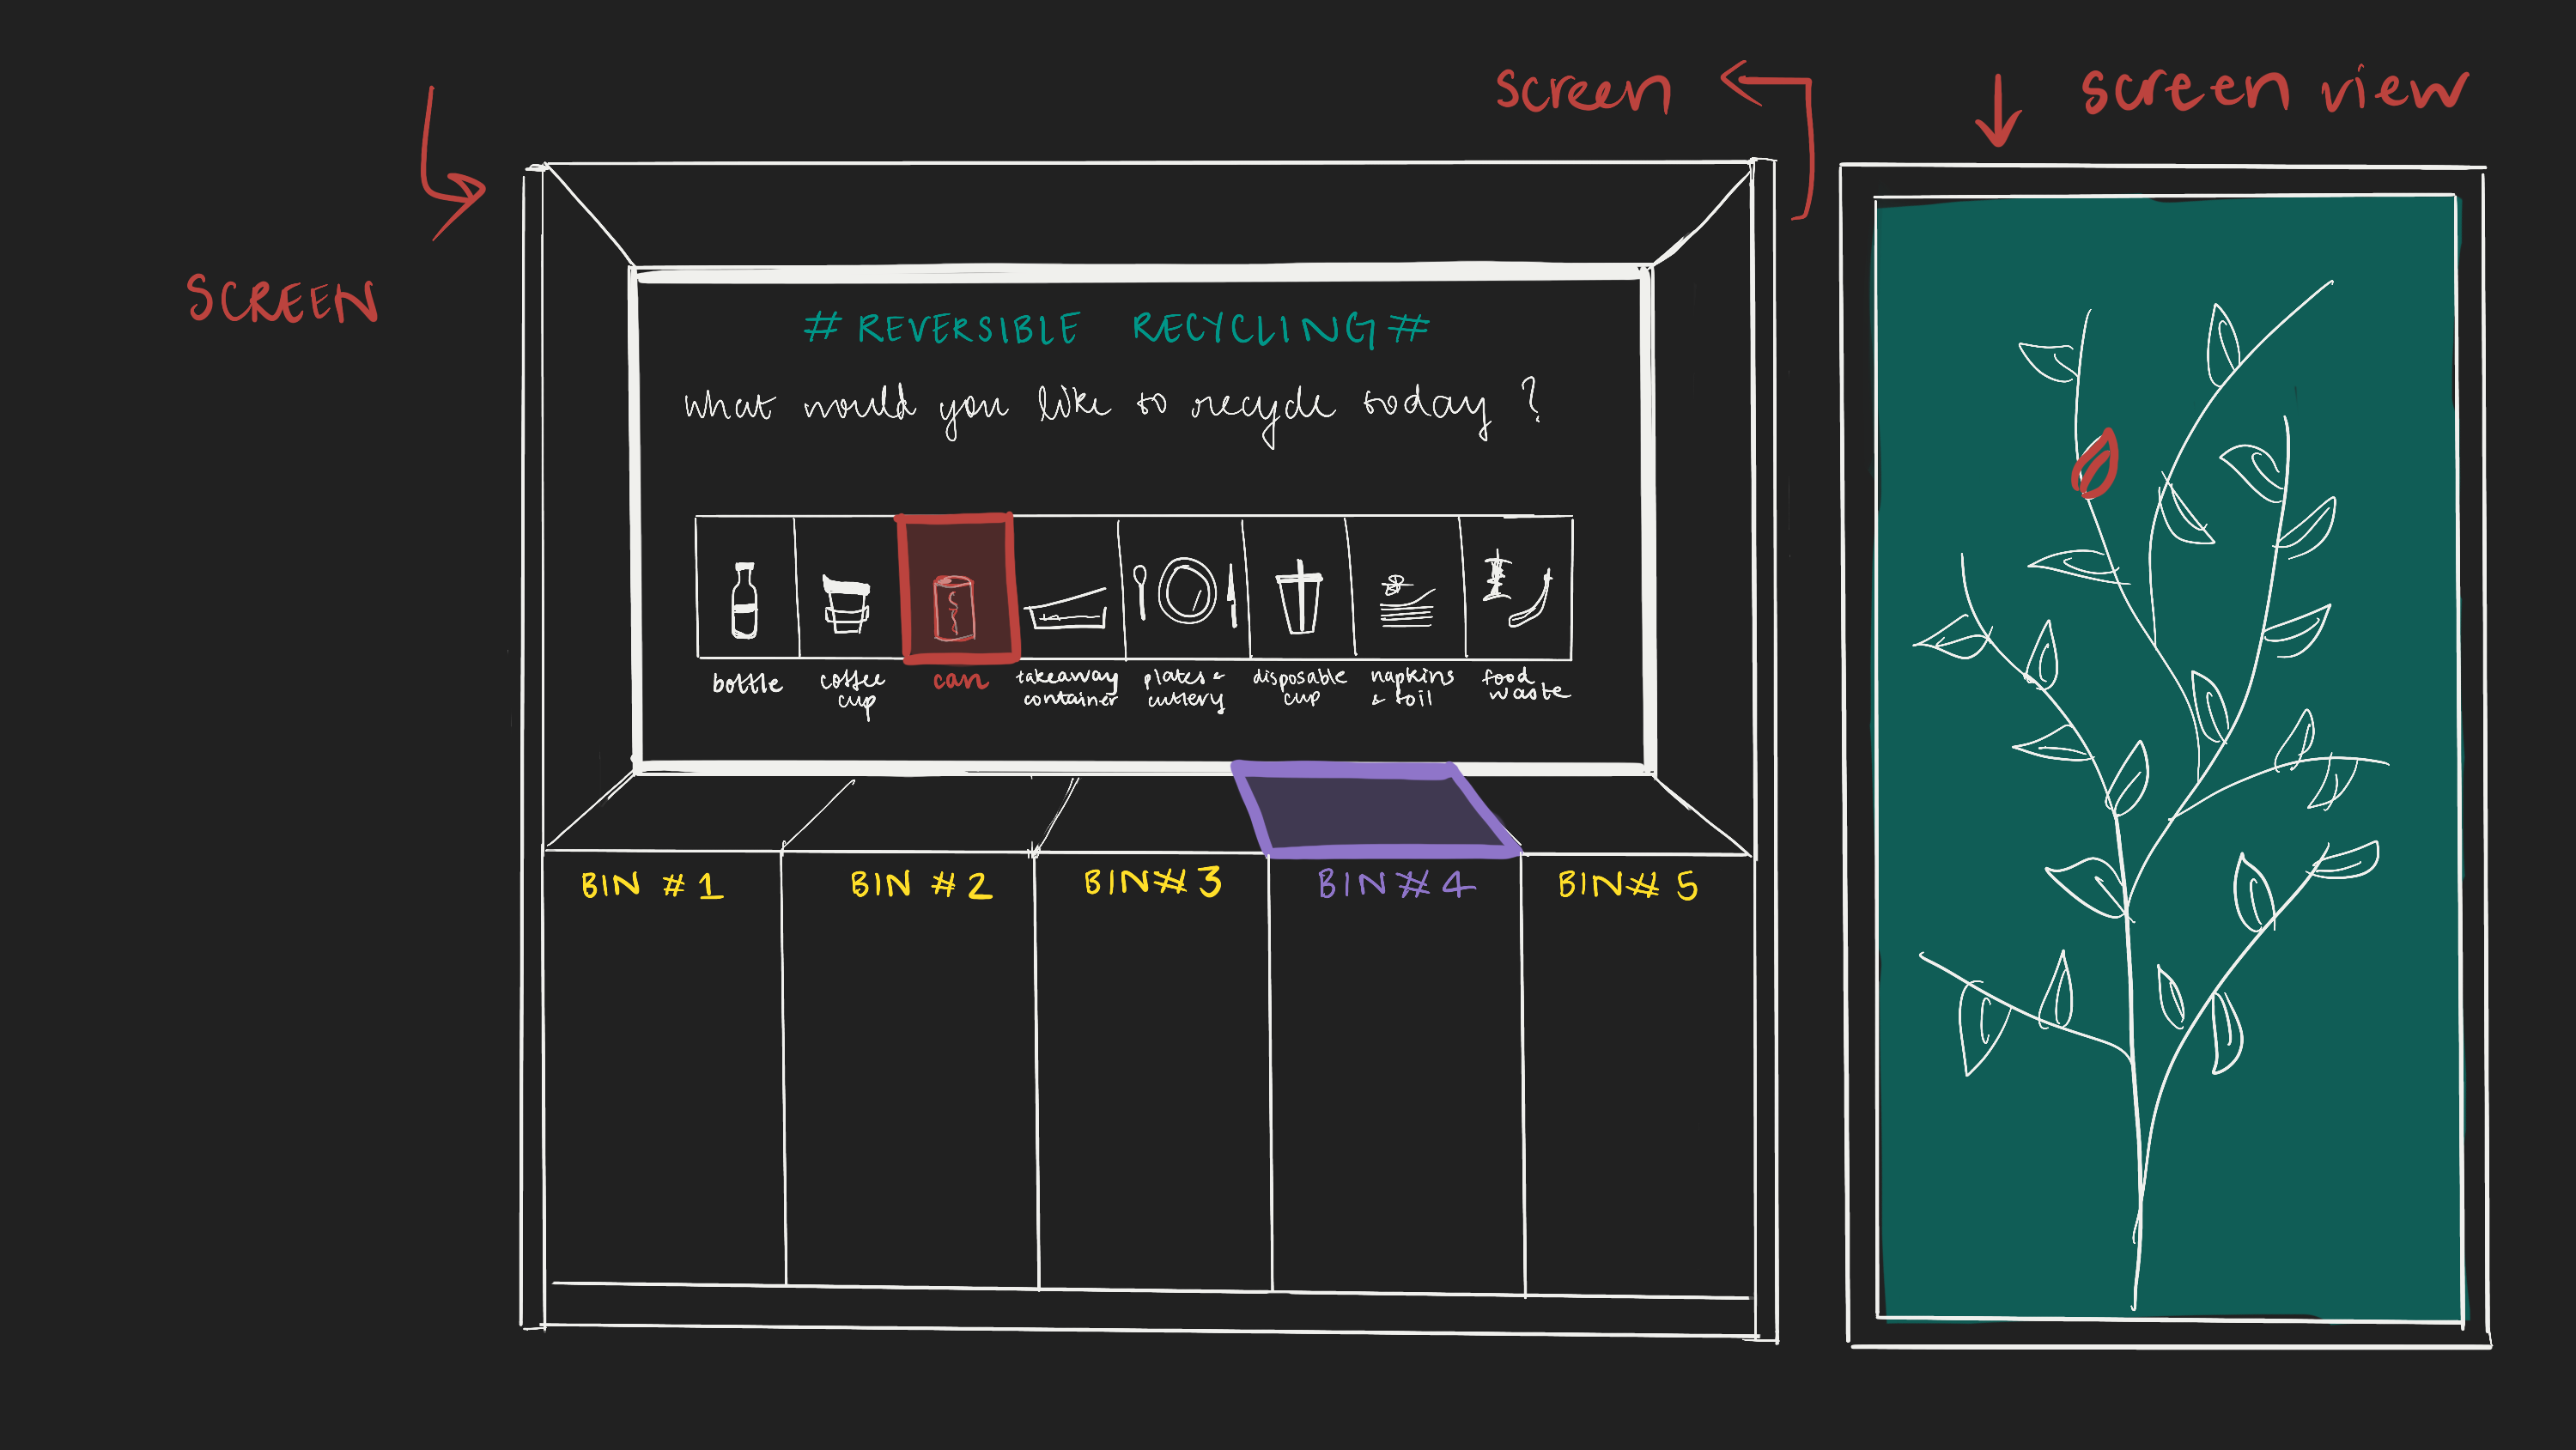 screen
screen view
SCREEN
# REVERSIBLE RECYCLING #
what would you like to recycle today ?
bottle
coffee
cup
can
takeaway
container
plates &
cutlery
disposable
cup
napkins
& foil
food
waste
BIN #1
BIN #2
BIN#3
BIN#4
BIN# 5